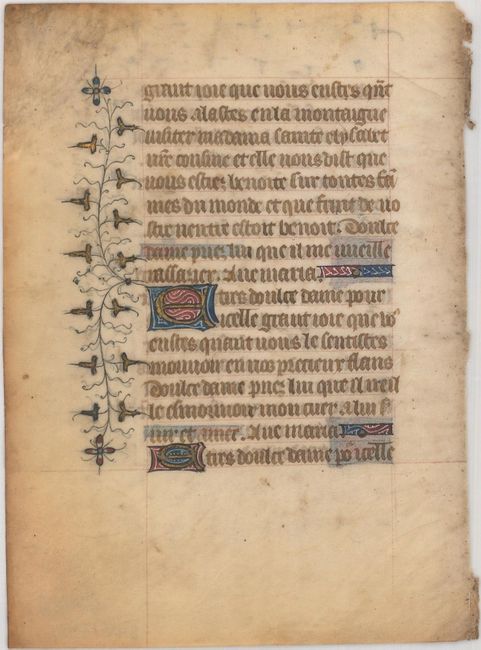 grant ioie que uous eustes qñt
uous alastes en la montaigne
uisiter madama sainte elyzabet
urẽ cousine et elle uous dist que
uous esties benoite sur toutes fã
mes du monde et que fruit de uo
stre uentre estoit benoit. Doulce
dame priez lui que il me uueille
rassasier. Aue maria.
Etres doulce dame pour
icelle grant ioie que uo
eustes quant uous le sentistes
mouuoir en uos precieux flans
Doulce dame priez lui que il ueil
le esmouuoir mon cuer. A lui
uir et amer. Aue maria
Etres doulce dame põ icelle